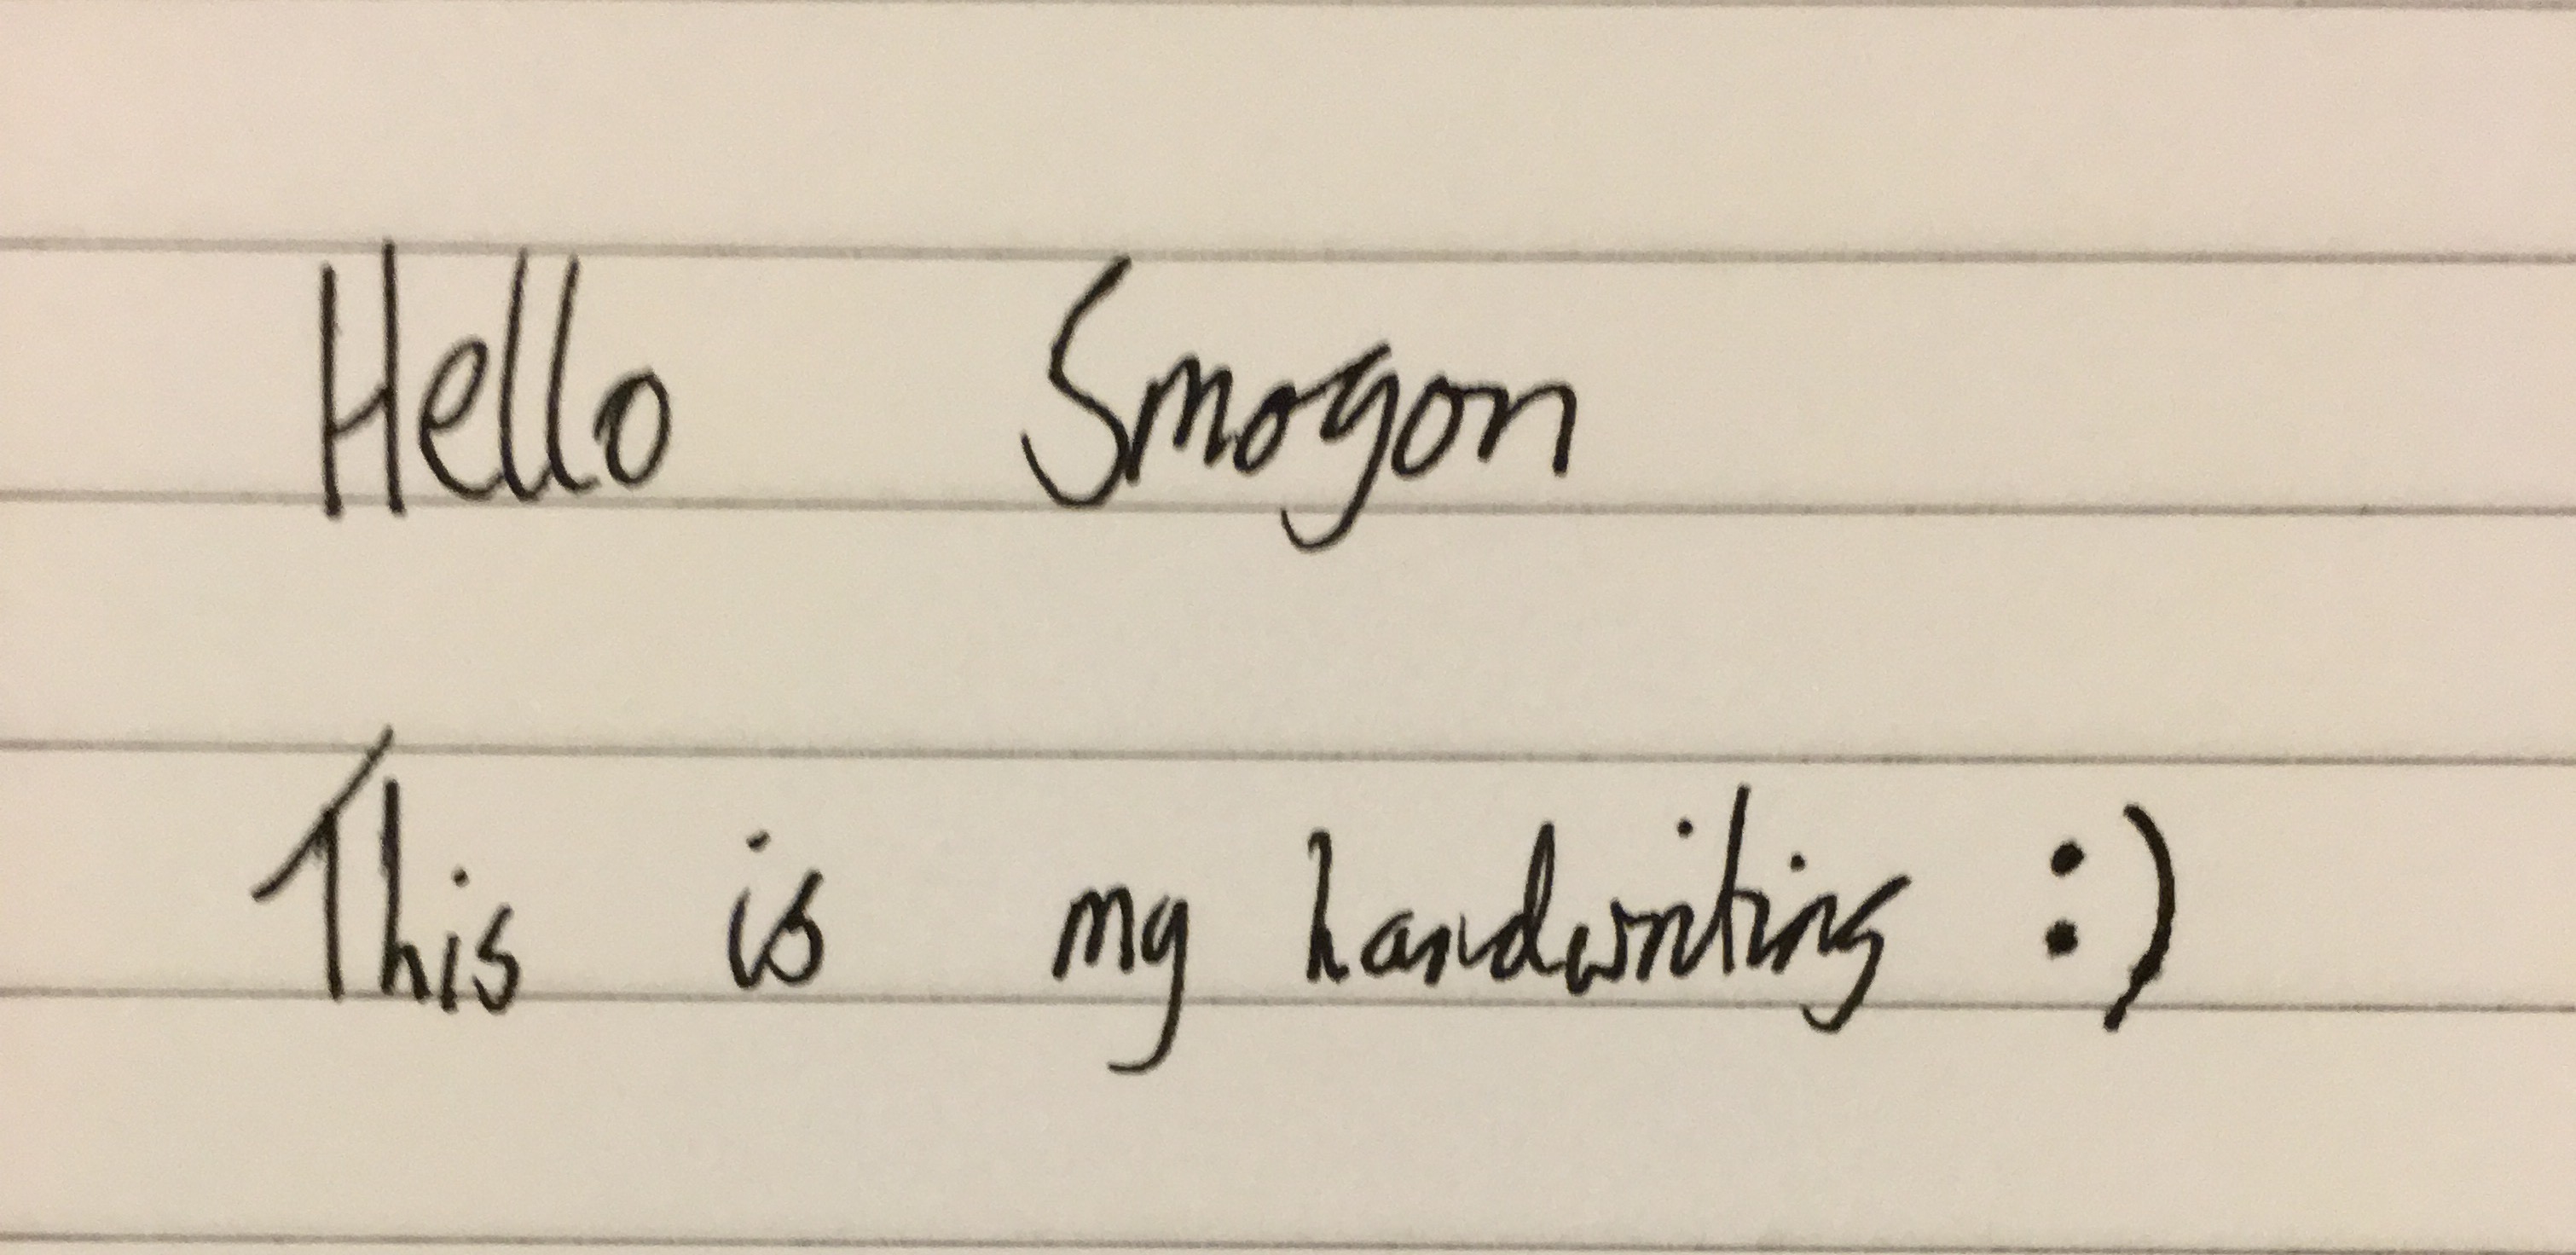 Hello Smogon
This is my handwriting :)